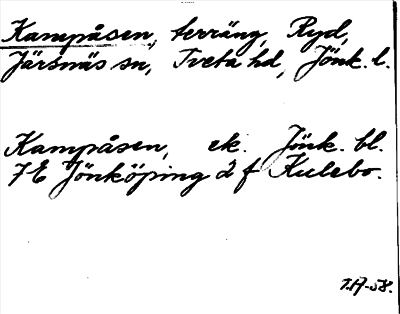 Kampåsen, terräng, Ryd,
Järsnäs sn, Tveta hd, Jönk. l.
Kampåsen, ek. Jönk. bl.
7E Jönköping d f Kulebo.
7.A-58.